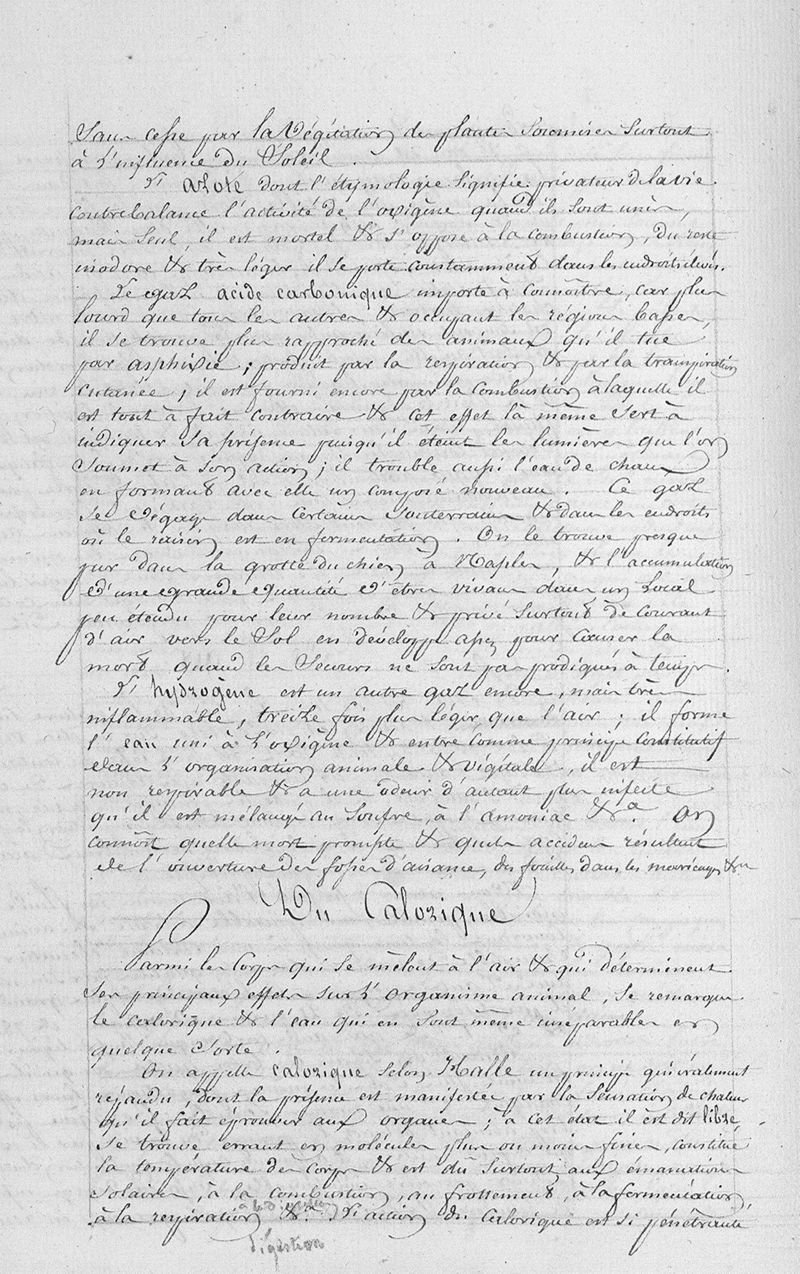 Sans cesse par la Végétation des plantes Soumises Surtout
à l'influence du Soleil.
L'azote dont l'étymologie signifie privateur de la vie
contrebalance l'activité de l'oxigène quand ils sont unis,
mais seul, il est mortel & s'oppose à la combustion, du reste
inodore & très léger il se porte constamment dans les endroits élevés.
Le gaz acide carbonique importe à connoître, car plus
lourd que tous les autres & occupant les régions basses,
il se trouve plus rapproché des animaux qu'il tue
par asphixie; produit par la respiration & par la transpiration
cutanée; il est fourni encore par la combustion à laquelle il
est tout à fait contraire & cet effet là même sert à
indiquer sa présense puisqu'il éteint les lumières que l'on
Soumet à son action; il trouble aussi l'eau de chaux
en formant avec elle un composé nouveau. Ce gaz
se dégage dans certains souterrains & dans les endroits
où le raisin est en fermentation. On le trouve presque
pur dans la grotte du chien à Naples, & l'accumulation
d'une grande quantité d'êtres vivans dans un local
peu étendu pour leur nombre & privé surtout de courant
d'air vers le Sol en développe assez pour causer la
mort quand les Secours ne sont pas prodigués à temps.
L'hydrogène est un autre gaz encore, mais très
inflammable, treize fois plus léger que l'air; il forme
l'eau uni à l'oxigène & entre comme principe constitutif
dans l'organisation animale & végétale, il est
non respirable & a une odeur d'autant plus infecte
qu'il est mélangé au Soufre, à l'amoniac &a. On
connoît quelle mort prompte & quels accidens résultent
de l'ouverture des fosses d'aisance, des fouilles dans les marécages &a
Du Calorique
Parmi les Corps qui se mêlent à l'air & qui déterminent
ses principaux effets sur l'organisme animal, se remarque
le calorique & l'eau qui en sont même inséparables en
quelque sorte.
On appelle calorique selon Halle un principe généralement
répandu, dont la présense est manifestée par la sensation de chaleur
qu'il fait éprouver aux organes; à cet état il est dit libre
se trouve errant en molécules plus ou moins fines, constitue
la température des Corps & est dû surtout aux émanations
Solaires, à la combustion, au frottement, à la fermentation,
à la respiration &a. L'action du calorique est si pénétrante
digestion